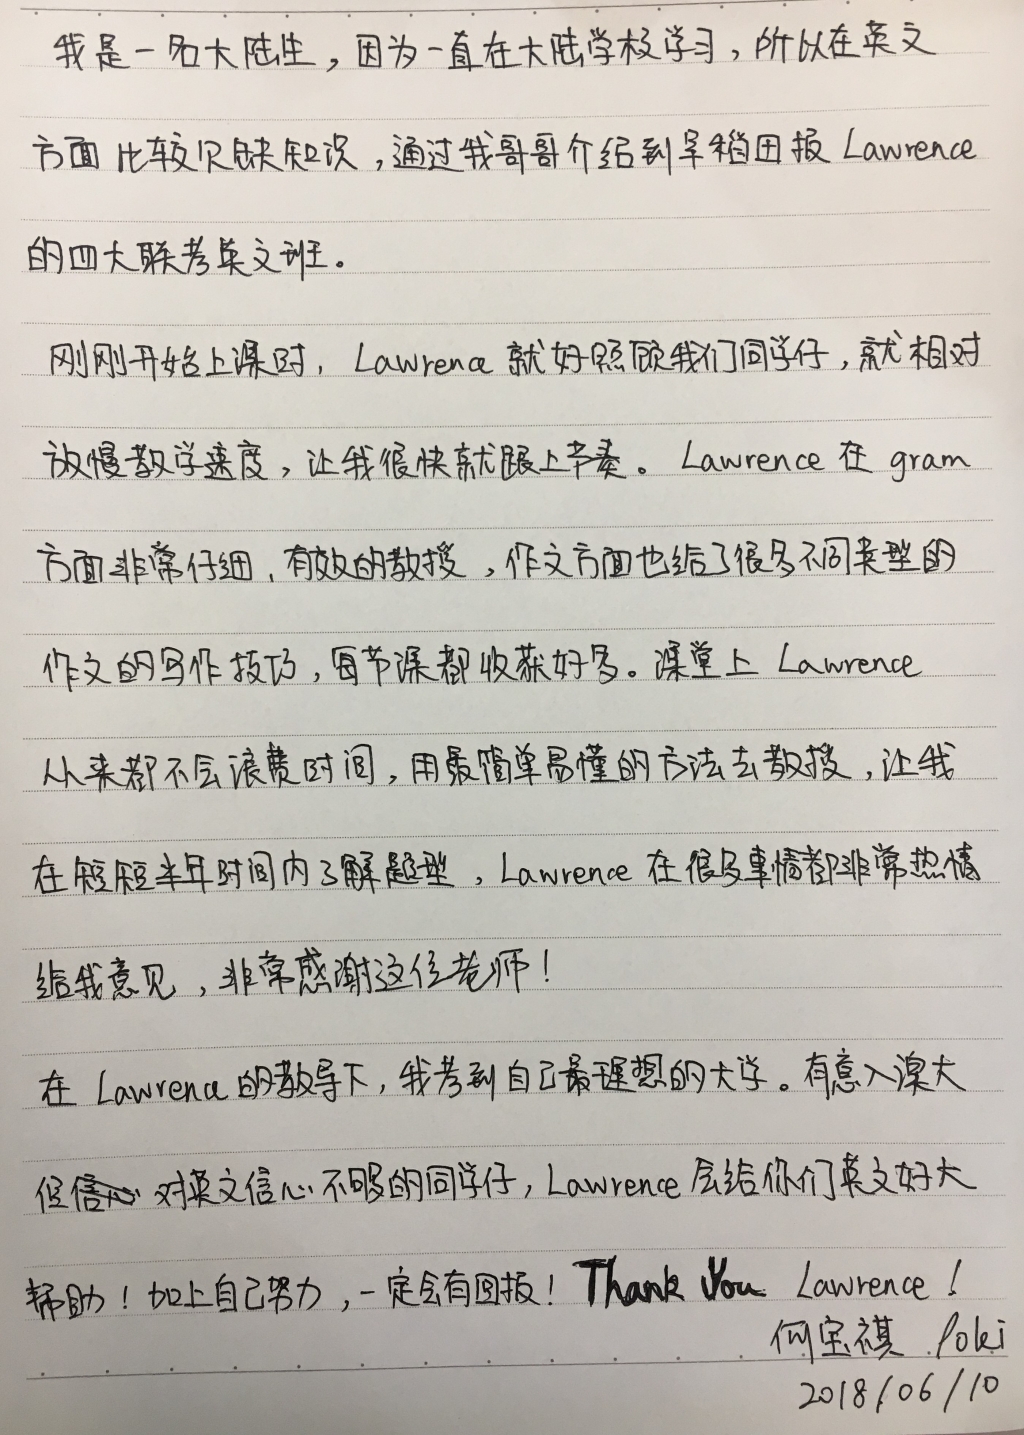 我是一名大陆生，因为一直在大陆学校学习，所以在英文
方面比较欠缺知识，通过我哥哥介绍到早稻田报 Lawrence
的四大联考英文班。
刚刚开始上课时，Lawrence 就好照顾我们同学仔，就相对
放慢教学速度，让我很快就跟上节奏。Lawrence 在 gram
方面非常仔细、有效的教授，作文方面也给了很多不同类型的
作文的写作技巧，每节课都收获好多。课堂上 Lawrence
从来都不会浪费时间，用最简单易懂的方法去教授，让我
在短短半年时间内了解题型，Lawrence 在很多事情都非常热情
给我意见，非常感谢这位老师！
在 Lawrence 的教导下，我考到自己最理想的大学。有意入澳大
但信心 对英文信心不够的同学仔，Lawrence 会给你们英文好大
帮助！加上自己努力，一定会有回报！Thank You Lawrence！
何宝祺 Poki
2018/06/10